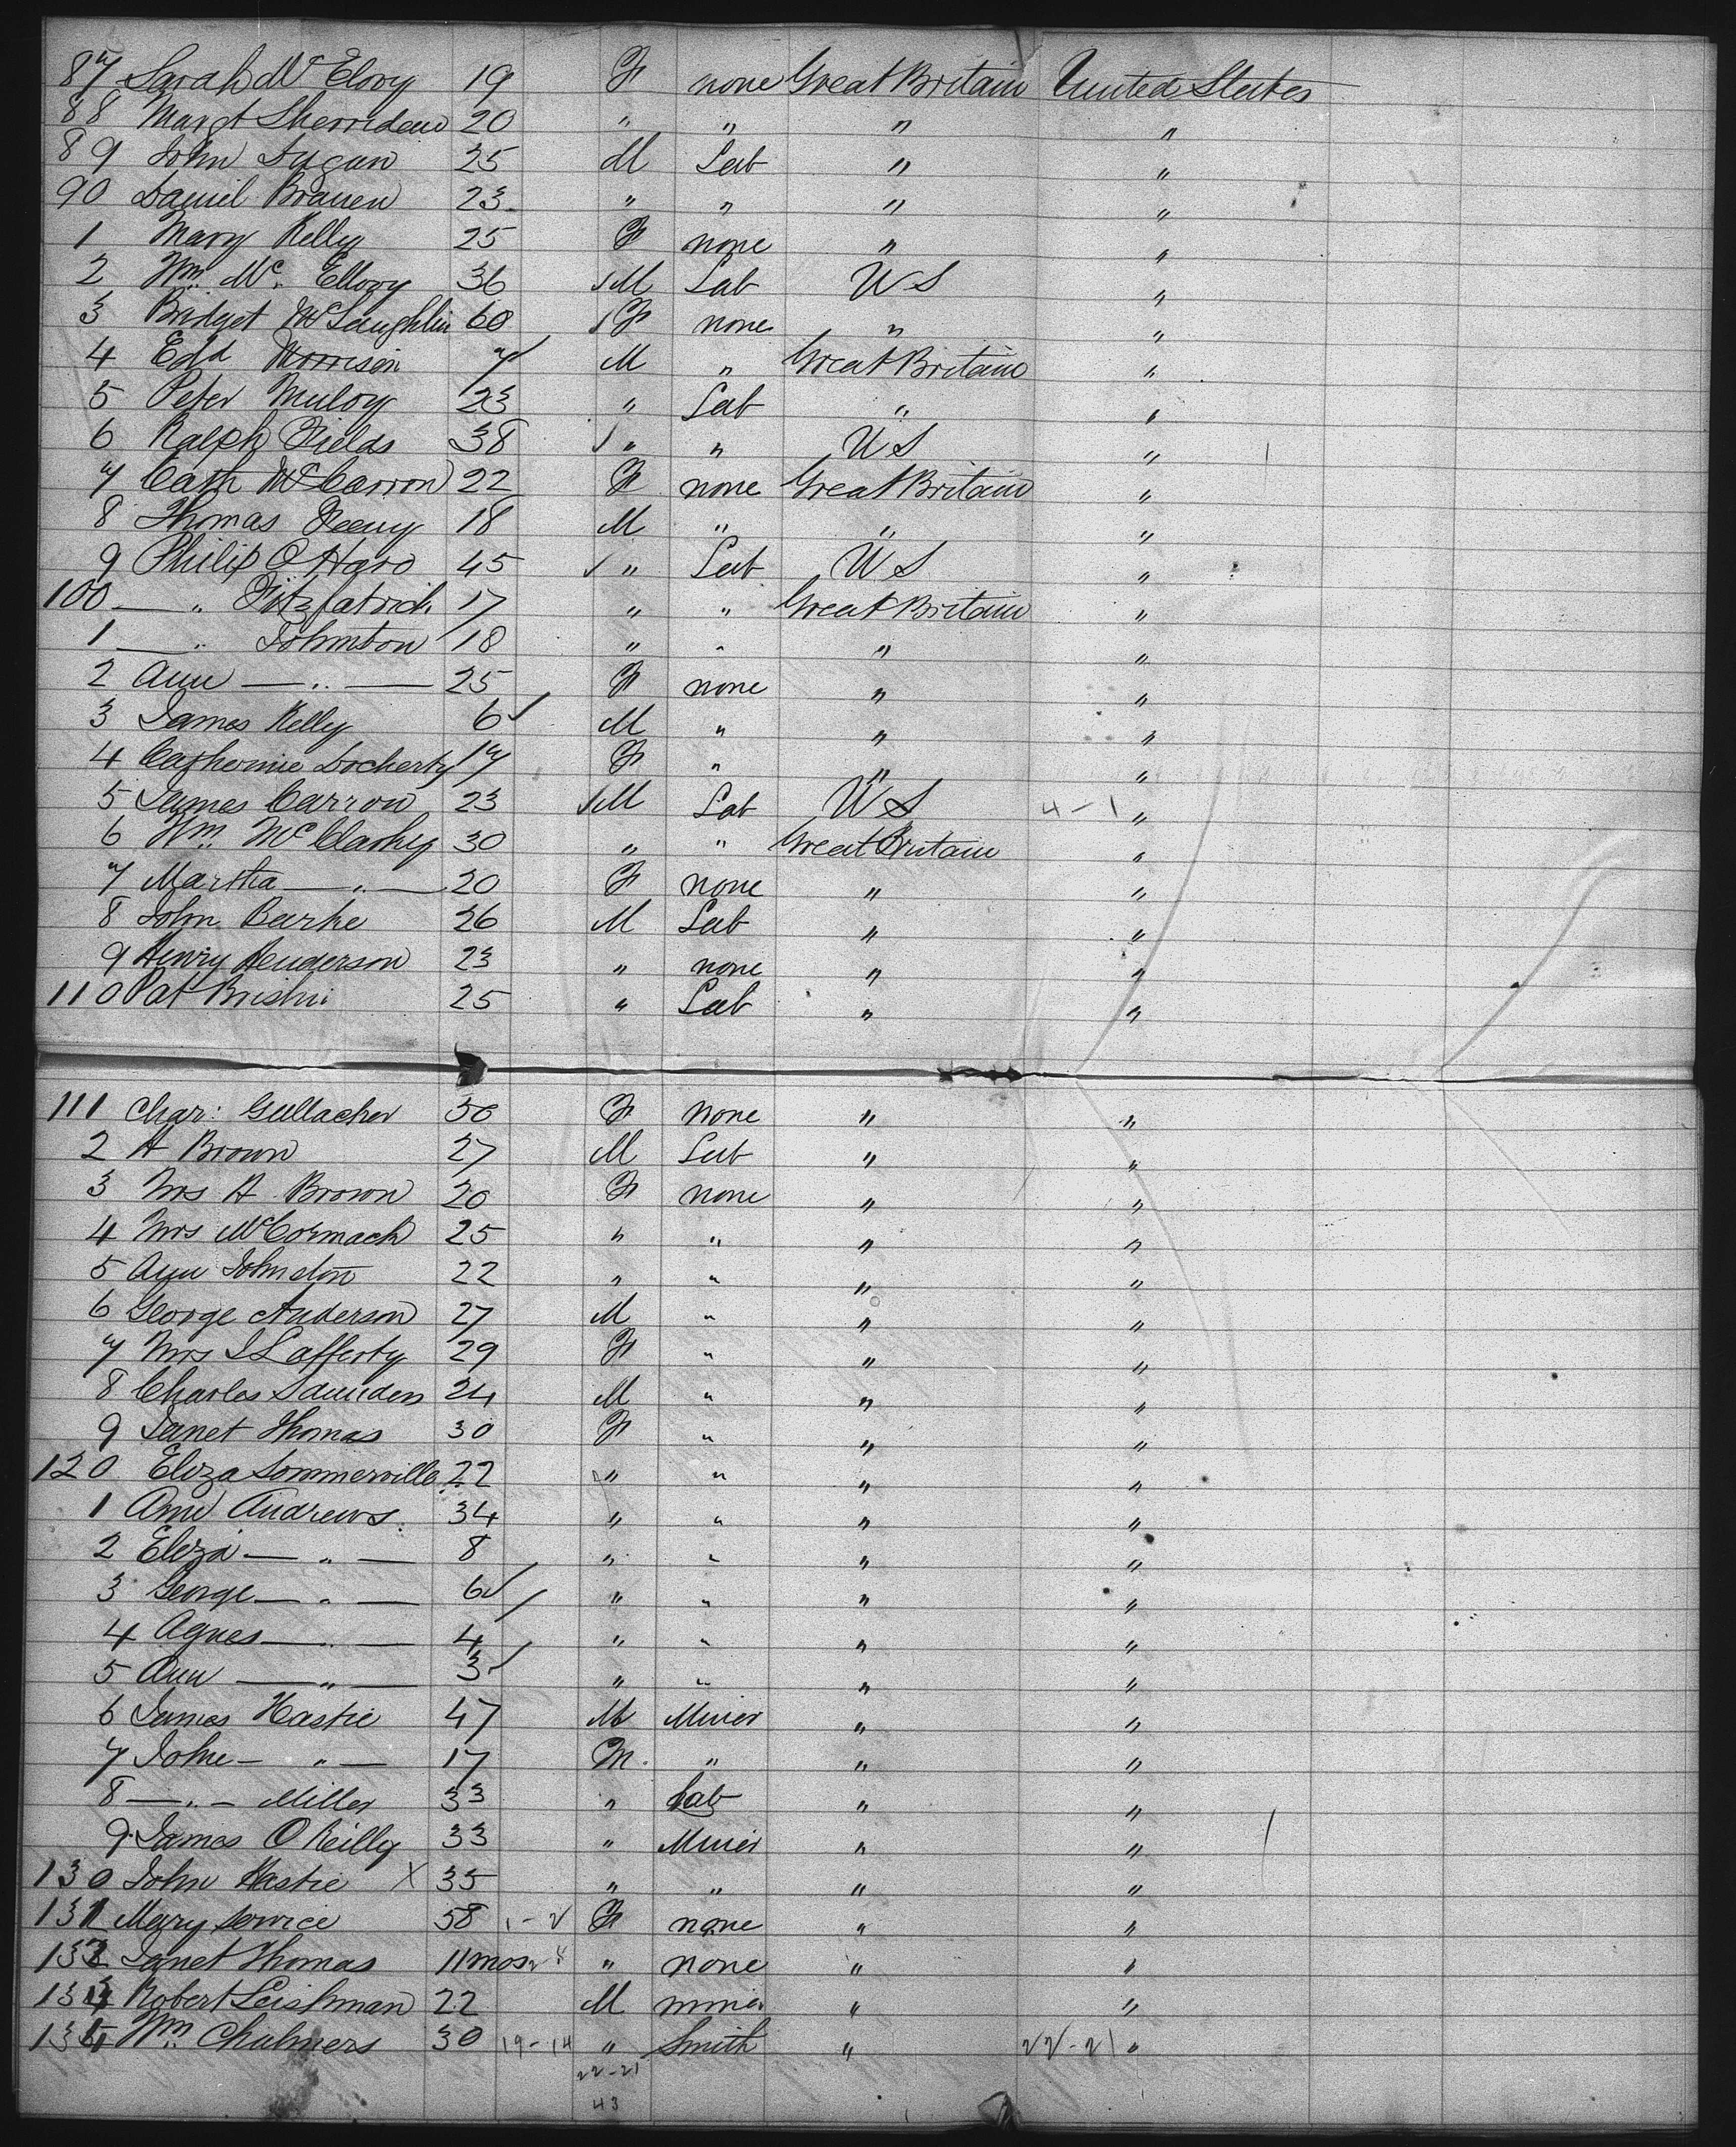 87 Sarah McElovy 19 F none Great Britain United States
88 Margt Sherridan 20 " " " "
89 John Dugan 25 M Lab " "
90 Daniel Brauen 23 " " " "
1 Mary Kelly 25 F none " "
2 Wm. Mc. Ellovy 36 M Lab U S "
3 Bridget McLaughlin 60 F none " "
4 Edd Morrison 7 M " Great Britain "
5 Peter Muloy 23 " Lab " "
6 Ralph Fields 38 " " U S "
7 Cath McCarron 22 F none Great Britain "
8 Thomas Feeny 18 M " " "
9 Philip O Haro 45 " Lab U S "
100 — " Fitzpatrick 17 " " Great Britain "
1 — " Johnston 18 " " " "
2 Ann — " — 25 F none " "
3 James Kelly 6 M " " "
4 Catherine Docherty 17 F " " "
5 James Carron 23 M Lab U S 4-1 "
6 Wm. McClaskey 30 " " Great Britain "
7 Martha — " — 20 F none " "
8 John Burke 26 M Lab " "
9 Henry Henderson 23 " none " "
110 Pat 25 " Lab " "
111 Char: Gullacher 50 F none " "
2 A Brown 27 M Lab " "
3 Mrs A Brown 20 F none " "
4 Mrs McCormack 25 " " " "
5 Ann Johnston 22 " " " "
6 George Anderson 27 M " " "
7 Mrs J Lafferty 29 F " " "
8 Charles Saunders 24 M " " "
9 Janet Thomas 30 F " " "
120 Eliza Sommerville 22 " " " "
1 Ann Andrews 34 " " " "
2 Eliza — " — 8 " " " "
3 George — " — 6 " " " "
4 Agnes — " — 4 " " " "
5 Ann — " — 3 " " " "
6 James Hastie 47 M Miner " "
7 John — " — 17 M. " " "
8 — " — Miller 33 " Lab " "
9 James O Reilly 33 " Miner " "
130 John Hastie X 35 " " " "
131 Mary Service 58 1-2 F none " "
132 Janet Thomas 11 mos " none " "
133 Robert Leishman 22 M miner " "
134 Wm. Chalmers 30 19-14 " Smith " 22-21 "
22-21
43